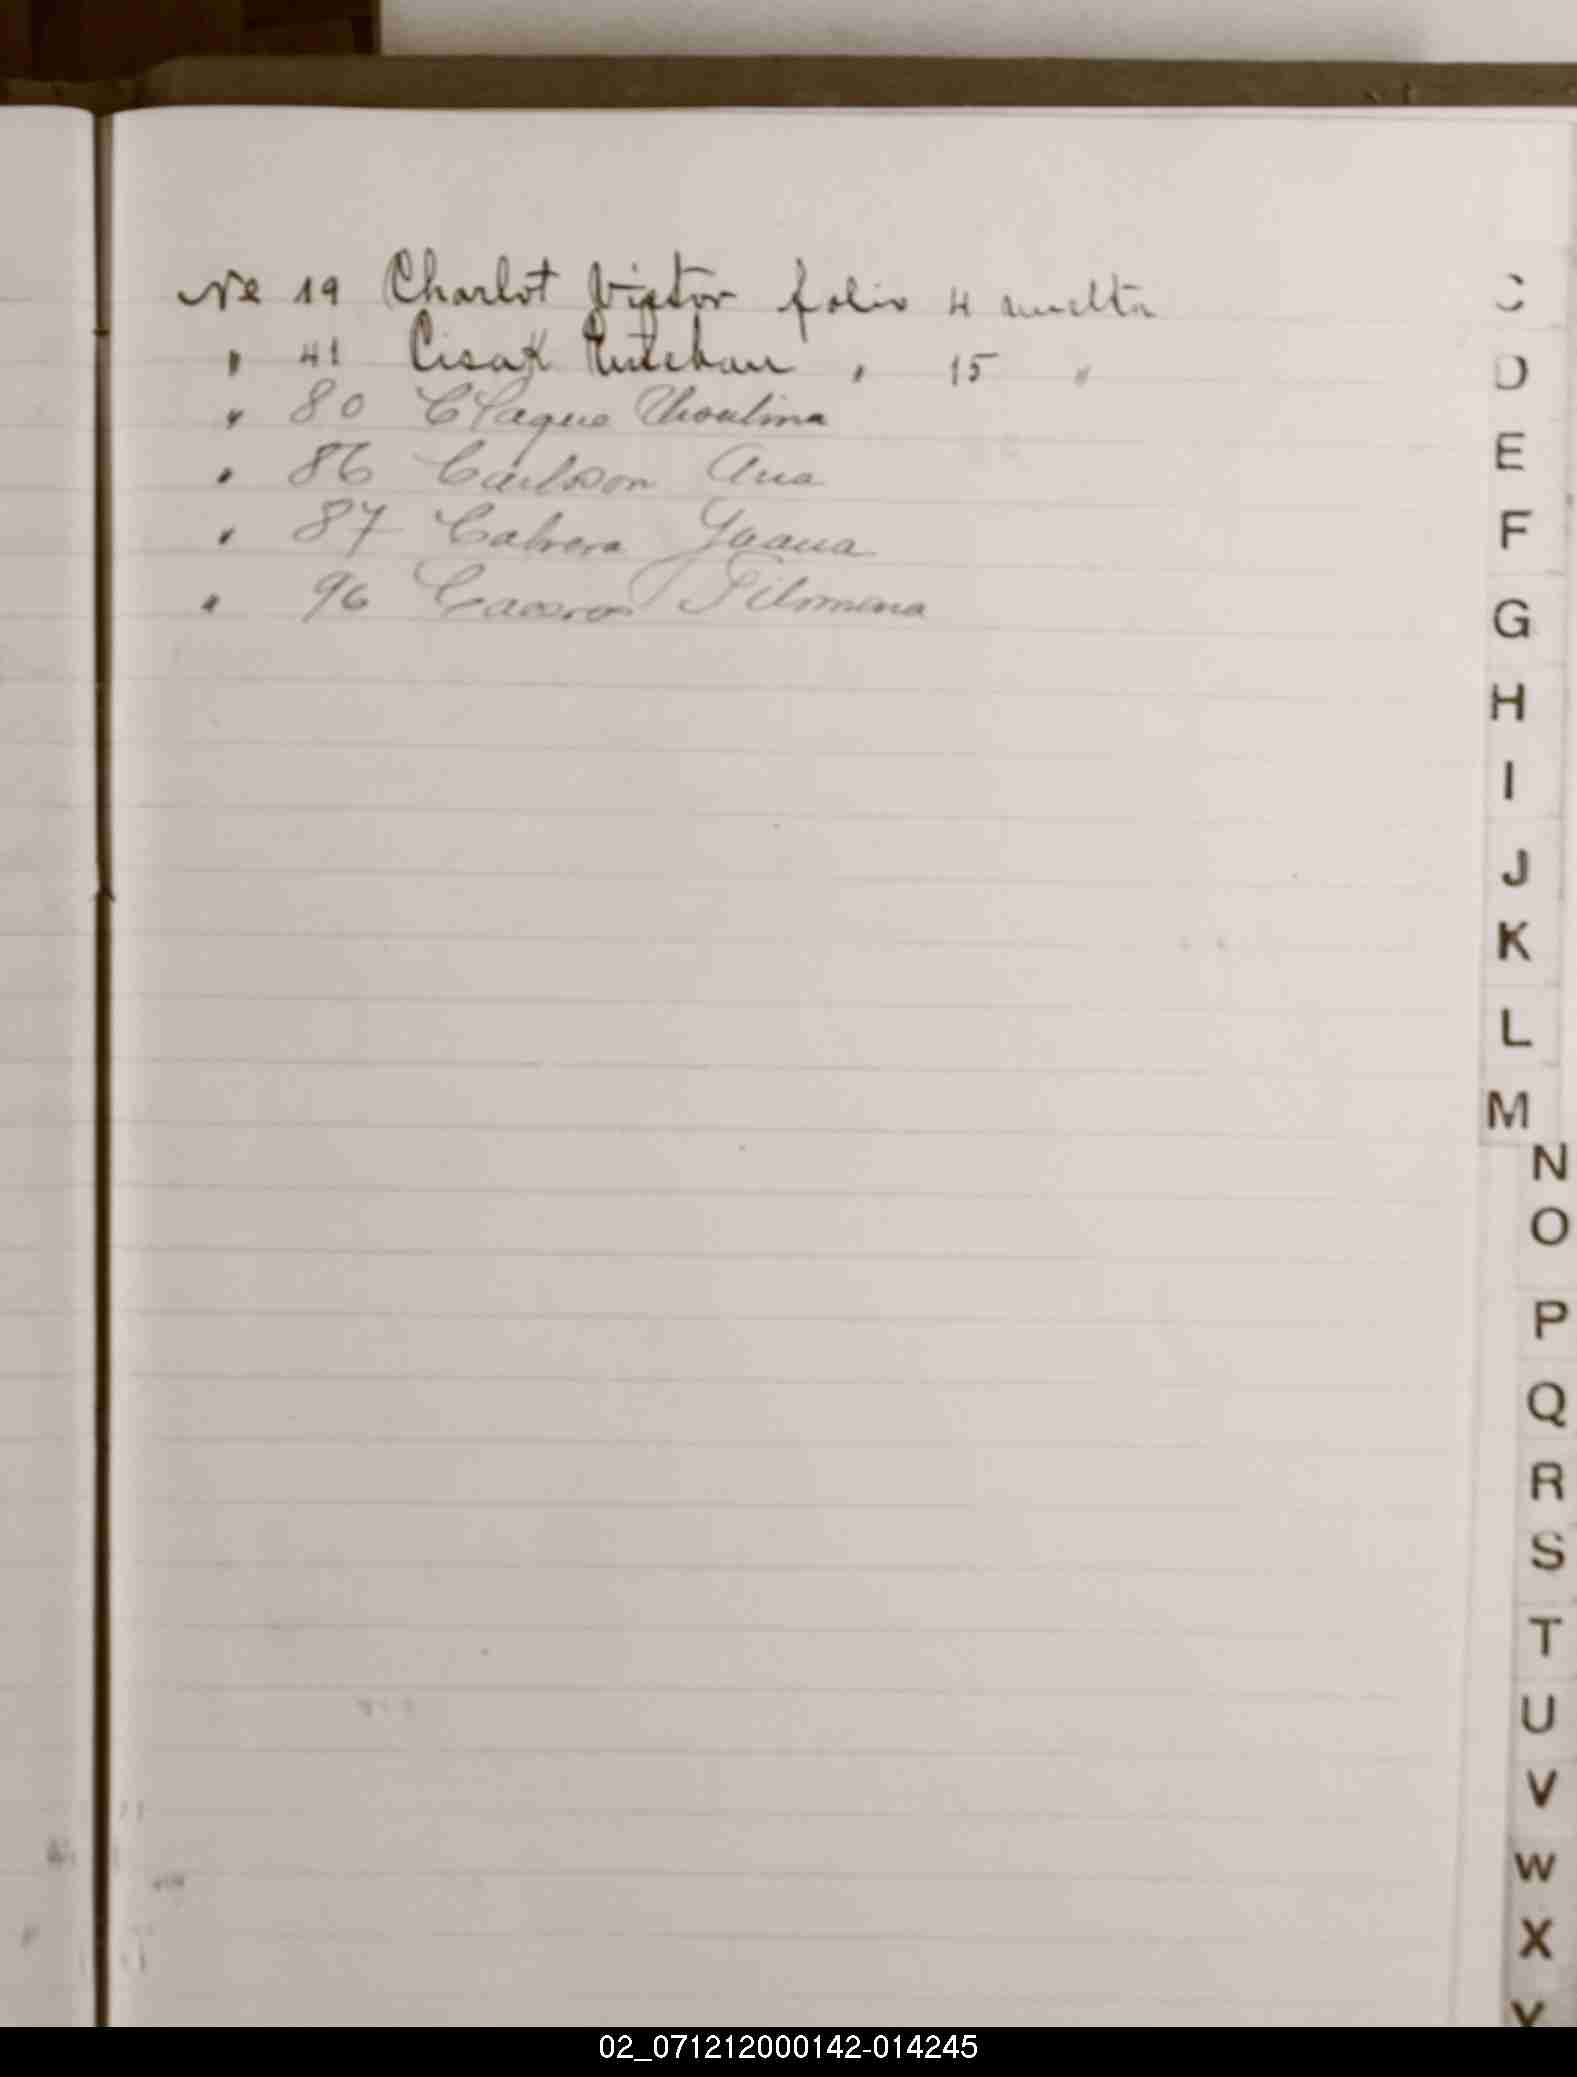 Nº 19 Charlot Victor folio 4 vuelta
" 41 Cisak " 15 "
" 80 Claque Choulina
" 86 Carlson Ana
" 87 Cabrera Juana
" 96 Caceres Filomena
C
D
E
F
G
H
I
J
K
L
M
N
O
P
Q
R
S
T
U
V
W
X
Y
02_071212000142-014245